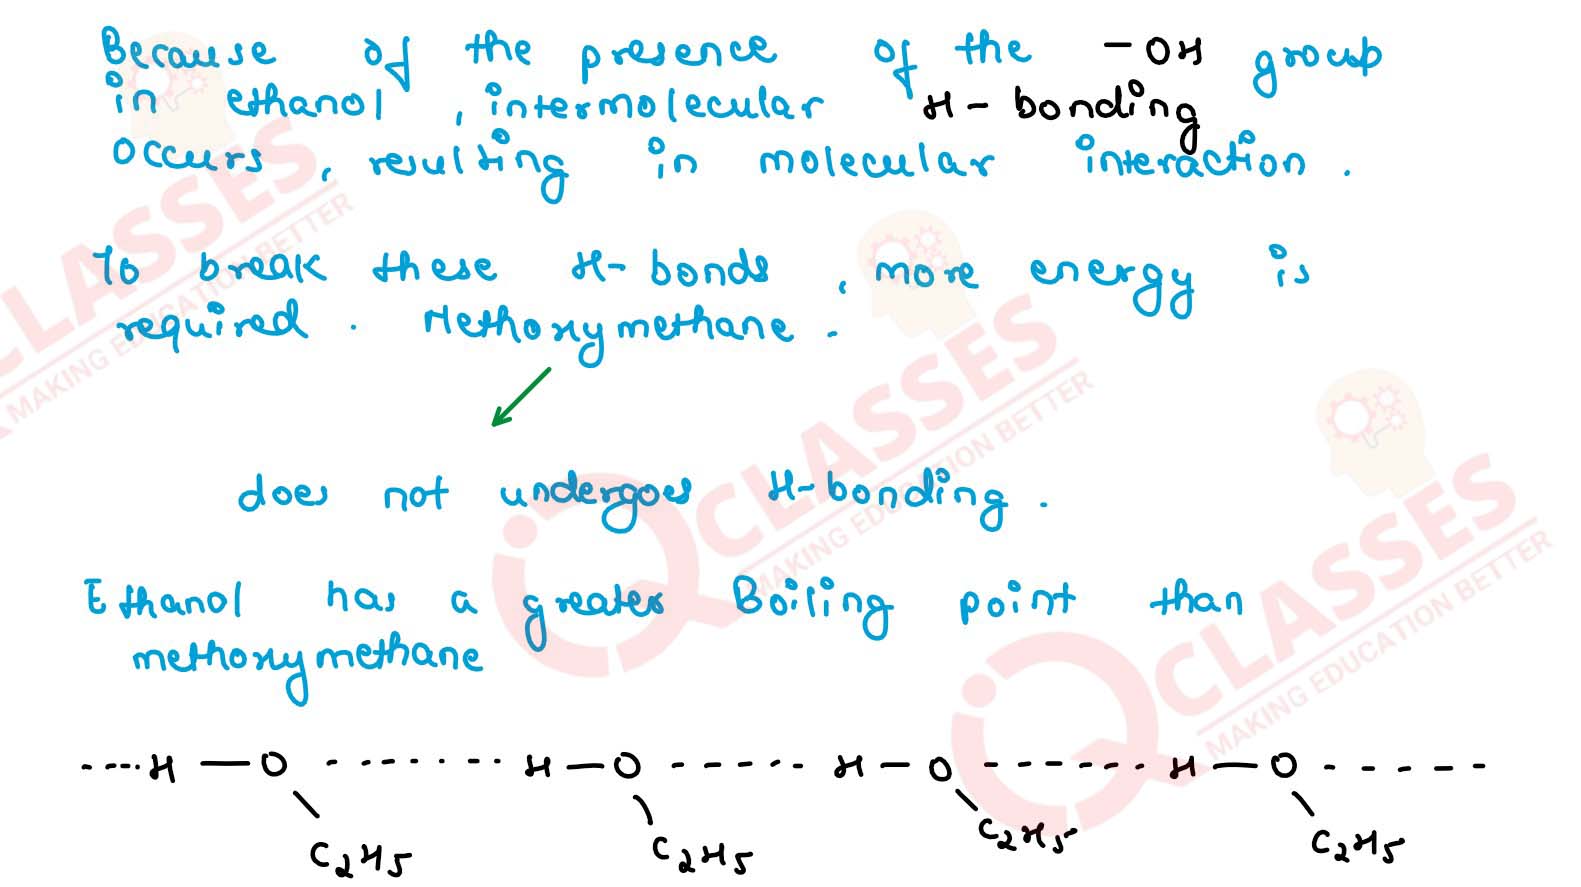 Because of the presence of the -OH group
in ethanol, intermolecular H-bonding
occurs, resulting in molecular interaction.
To break these H-bonds, more energy is
required. Methoxymethane.
does not undergoes H-bonding.
Ethanol has a greater Boiling point than
methoxymethane
----H—O-------H—O------H—O-------H—O------
C2H5 C2H5 C2H5 C2H5
CLASSES
MAKING EDUCATION BETTER
iQ CLASSES
MAKING EDUCATION BETTER
iQ CLASSES
MAKING EDUCATION BETTER